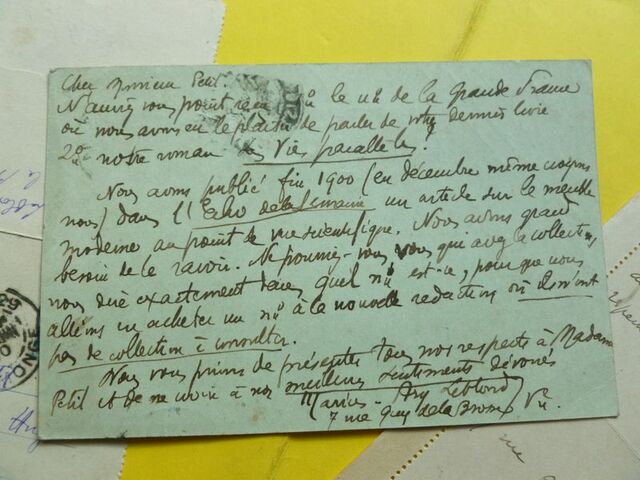 Cher Monsieur Petit
N'auriez vous point reçu 1° le n° de la Grande France
où nous avons eu le plaisir de parler de votre dernier livre
2° notre roman les Vies parallèles?
Nous avons publié fin 1900 (en décembre même croyons
nous) dans l'Echo de la Semaine un article sur le meuble
moderne au point de vue scientifique. Nous avons grand
besoin de le savoir. Ne pourriez-vous, vous qui avez la collection,
nous dire exactement dans quel n° est-ce, pour que nous
allions en acheter un n° à la nouvelle rédaction où ils n'ont
pas de collection à consulter.
Nous vous prions de présenter tous nos respects à Madame
Petit et de croire à nos meilleurs sentiments dévoués
Marius-Ary Leblond
7 rue Guy de la Brosse Ve
ONGE